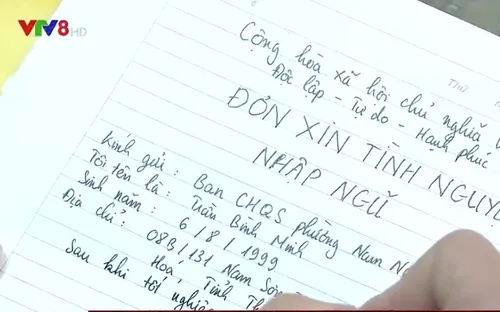 VTV8 HD
Thứ
Cộng hòa xã hội chủ nghĩa
Độc lập - Tự do - Hạnh phúc
ĐƠN XIN TÌNH NGUYỆ
NHẬP NGŨ
Kính gửi: Ban CHQS phường Nam
Tôi tên là: Trần Bình Minh
Sinh năm: 6/8/1999
Địa chỉ: 08B/131 Nam
Hoá, Tỉnh Th
Sau khi tôi nghiê